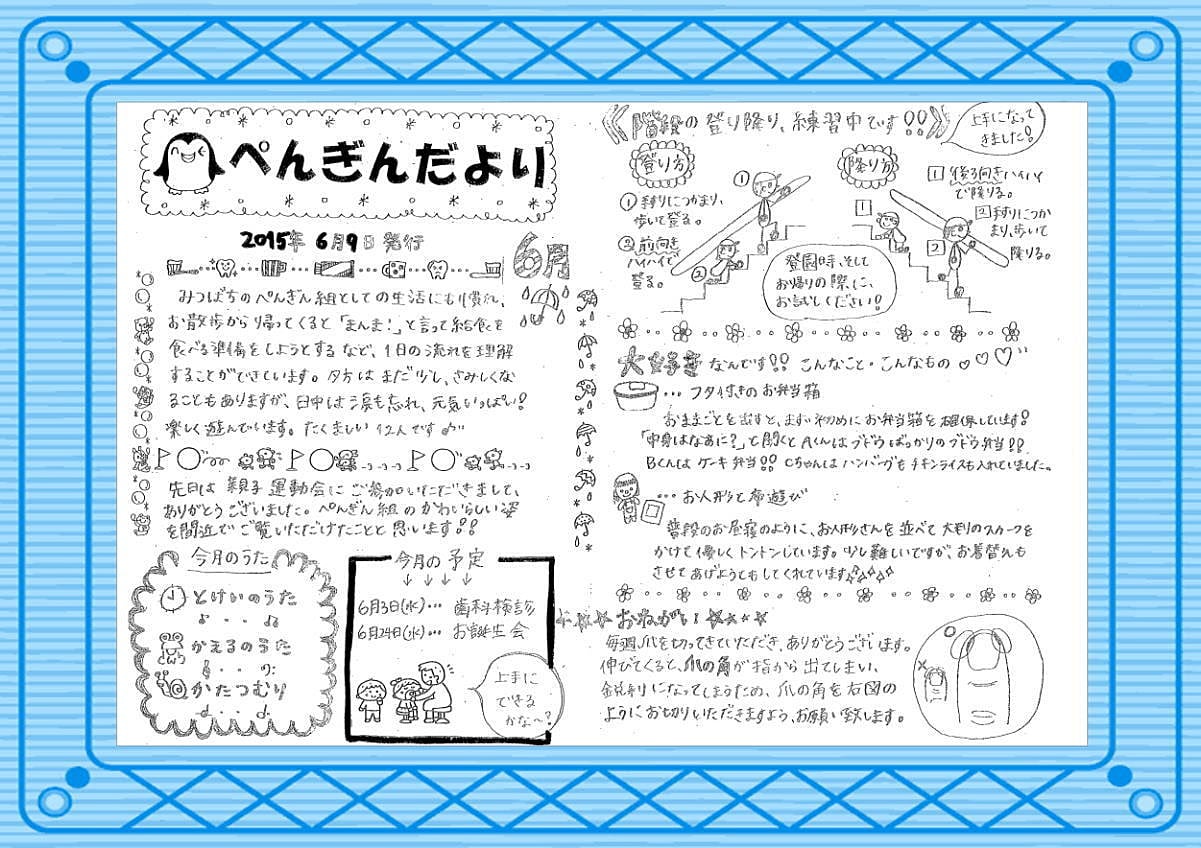 ぺんぎんだより
2015年 6月9日 発行
6月
みつばちのぺんぎん組としての生活にも慣れ、
お散歩から帰ってくると「まんま!」と言って給食を
食べる準備をしようとするなど、1日の流れを理解
することができています。夕方はまだ少し、さみしくな
ることもありますが、日中は涙も忘れ、元気いっぱい!
楽しく遊んでいます。たくましい12人です♪
先日は親子運動会にご参加いただきまして、
ありがとうございました。ぺんぎん組のかわいらしい姿
を間近でご覧いただけたことと思います!!
今月のうた
とけいのうた
かえるのうた
かたつむり
今月の予定
6月3日(水)… 歯科検診
6月24日(水)… お誕生会
上手に
できる
かな〜?
《階段の登り降り、練習中です!!》
上手になって
きました!
登り方
① 手すりにつかまり、
歩いて登る。
② 前向き
ハイハイで
登る。
①
②
降り方
1 後ろ向きハイハイ
で降りる。
2 手すりにつか
まり、歩いて
降りる。
1
2
登園時、そして
お帰りの際に、
お試しください!
大好きなんです!! こんなこと・こんなもの
… フタ付きのお弁当箱
おままごとを出すと、まず初めにお弁当箱を確保しています!
「中身はなあに?」と聞くとAくんはブドウばっかりのブドウ弁当!!
Bくんはケーキ弁当!! Cちゃんはハンバーグもチキンライスも入れていました。
… お人形と布遊び
普段のお昼寝のように、お人形さんを並べて大判のスカーフを
かけて優しくトントンしています。少し難しいですが、お着替えも
させてあげようともしてくれています
おねがい!
毎週爪を切ってきていただき、ありがとうございます。
伸びてくると、爪の角が指から出てしまい、
鋭利になってしまうため、爪の角を右図の
ようにお切りいただきますよう、お願い致します。